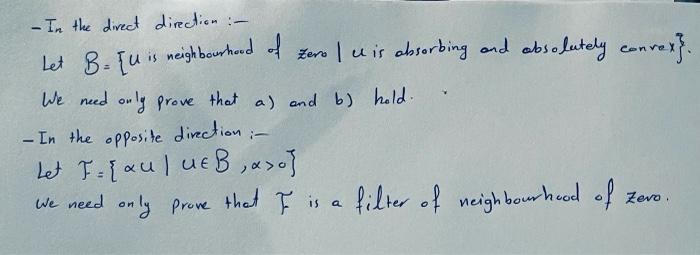 - In the direct direction :-
Let B = {U is neighbourhood of zero | u is absorbing and absolutely convex}.
We need only prove that a) and b) hold.
- In the opposite direction :-
Let F = {αU | U ∈ B, α>0}
We need only prove that F is a filter of neighbourhood of zero.